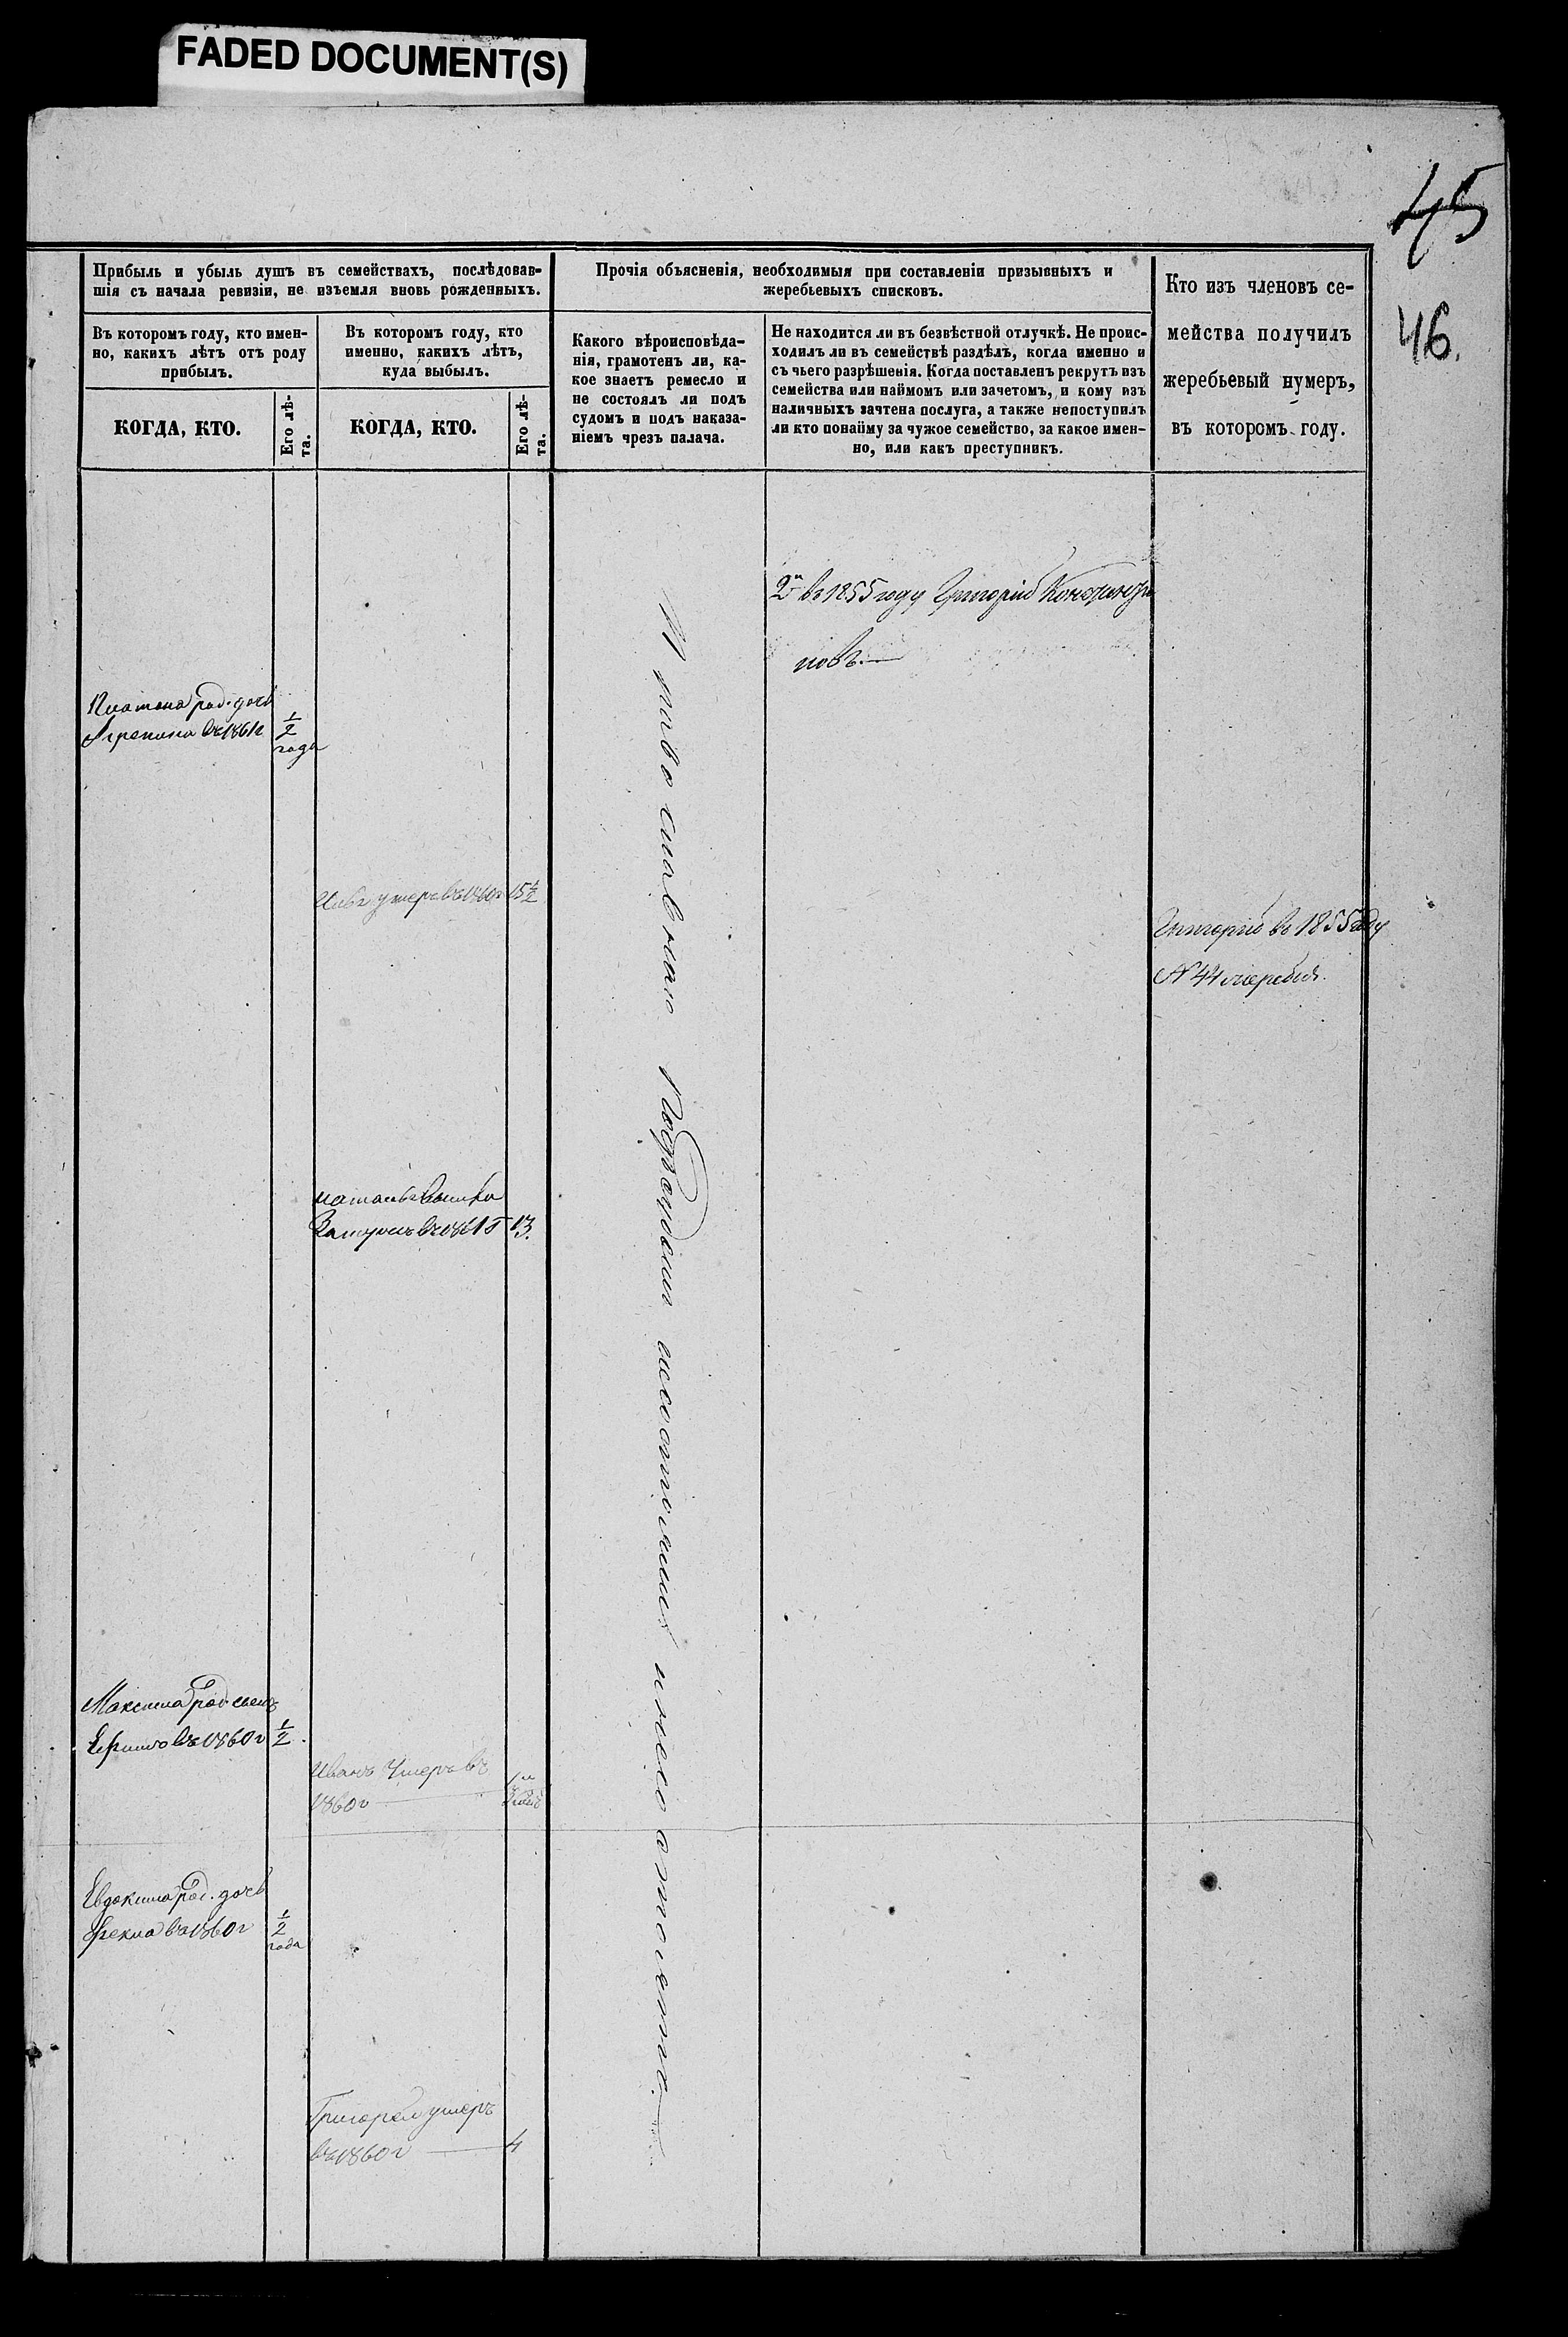 FADED DOCUMENT(S)
45
46.
Прибыль и убыль душъ въ семействахъ, послѣдовав-
шія съ начала ревизіи, не изъемля вновь рожденныхъ.
Въ которомъ году, кто имен-
но, какихъ лѣтъ отъ роду
прибылъ.
КОГДА, КТО.
Его лѣ-
та.
Въ которомъ году, кто
именно, какихъ лѣтъ,
куда выбылъ.
КОГДА, КТО.
Его лѣ-
та.
Прочія объясненія, необходимыя при составленіи призывныхъ и
жеребьевыхъ списковъ.
Какого вѣроисповѣда-
нія, грамотенъ ли, ка-
кое знаетъ ремесло и
не состоялъ ли подъ
судомъ и подъ наказа-
ніемъ чрезъ палача.
Не находится ли въ безвѣстной отлучкѣ. Не проис-
ходилъ ли въ семействѣ раздѣлъ, когда именно и
съ чьего разрѣшенія. Когда поставленъ рекрутъ изъ
семейства или наймомъ или зачетомъ, и кому изъ
наличныхъ зачтена послуга, а также непоступилъ
ли кто понайму за чужое семейство, за какое имен-
но, или какъ преступникъ.
Кто изъ членовъ се-
мейства получилъ
жеребьевый нумеръ,
въ которомъ году.
2й въ 1855 году Григорій
новъ.
Платона род. дочь
въ 1861г
1/2
года
умеръ въ 1860г 15 1/2
Григорій въ 1855 году
№ 44 жеребья.
13.
Православнаго Подсудомъ несостоялъ
Максима род. сынъ
Ефимъ въ 1860г 1/2
Иванъ Умеръ въ
1860г
Евдокима род. дочь
Фекла въ 1860г
1/2
года
Григорей умеръ
въ 1860г 4